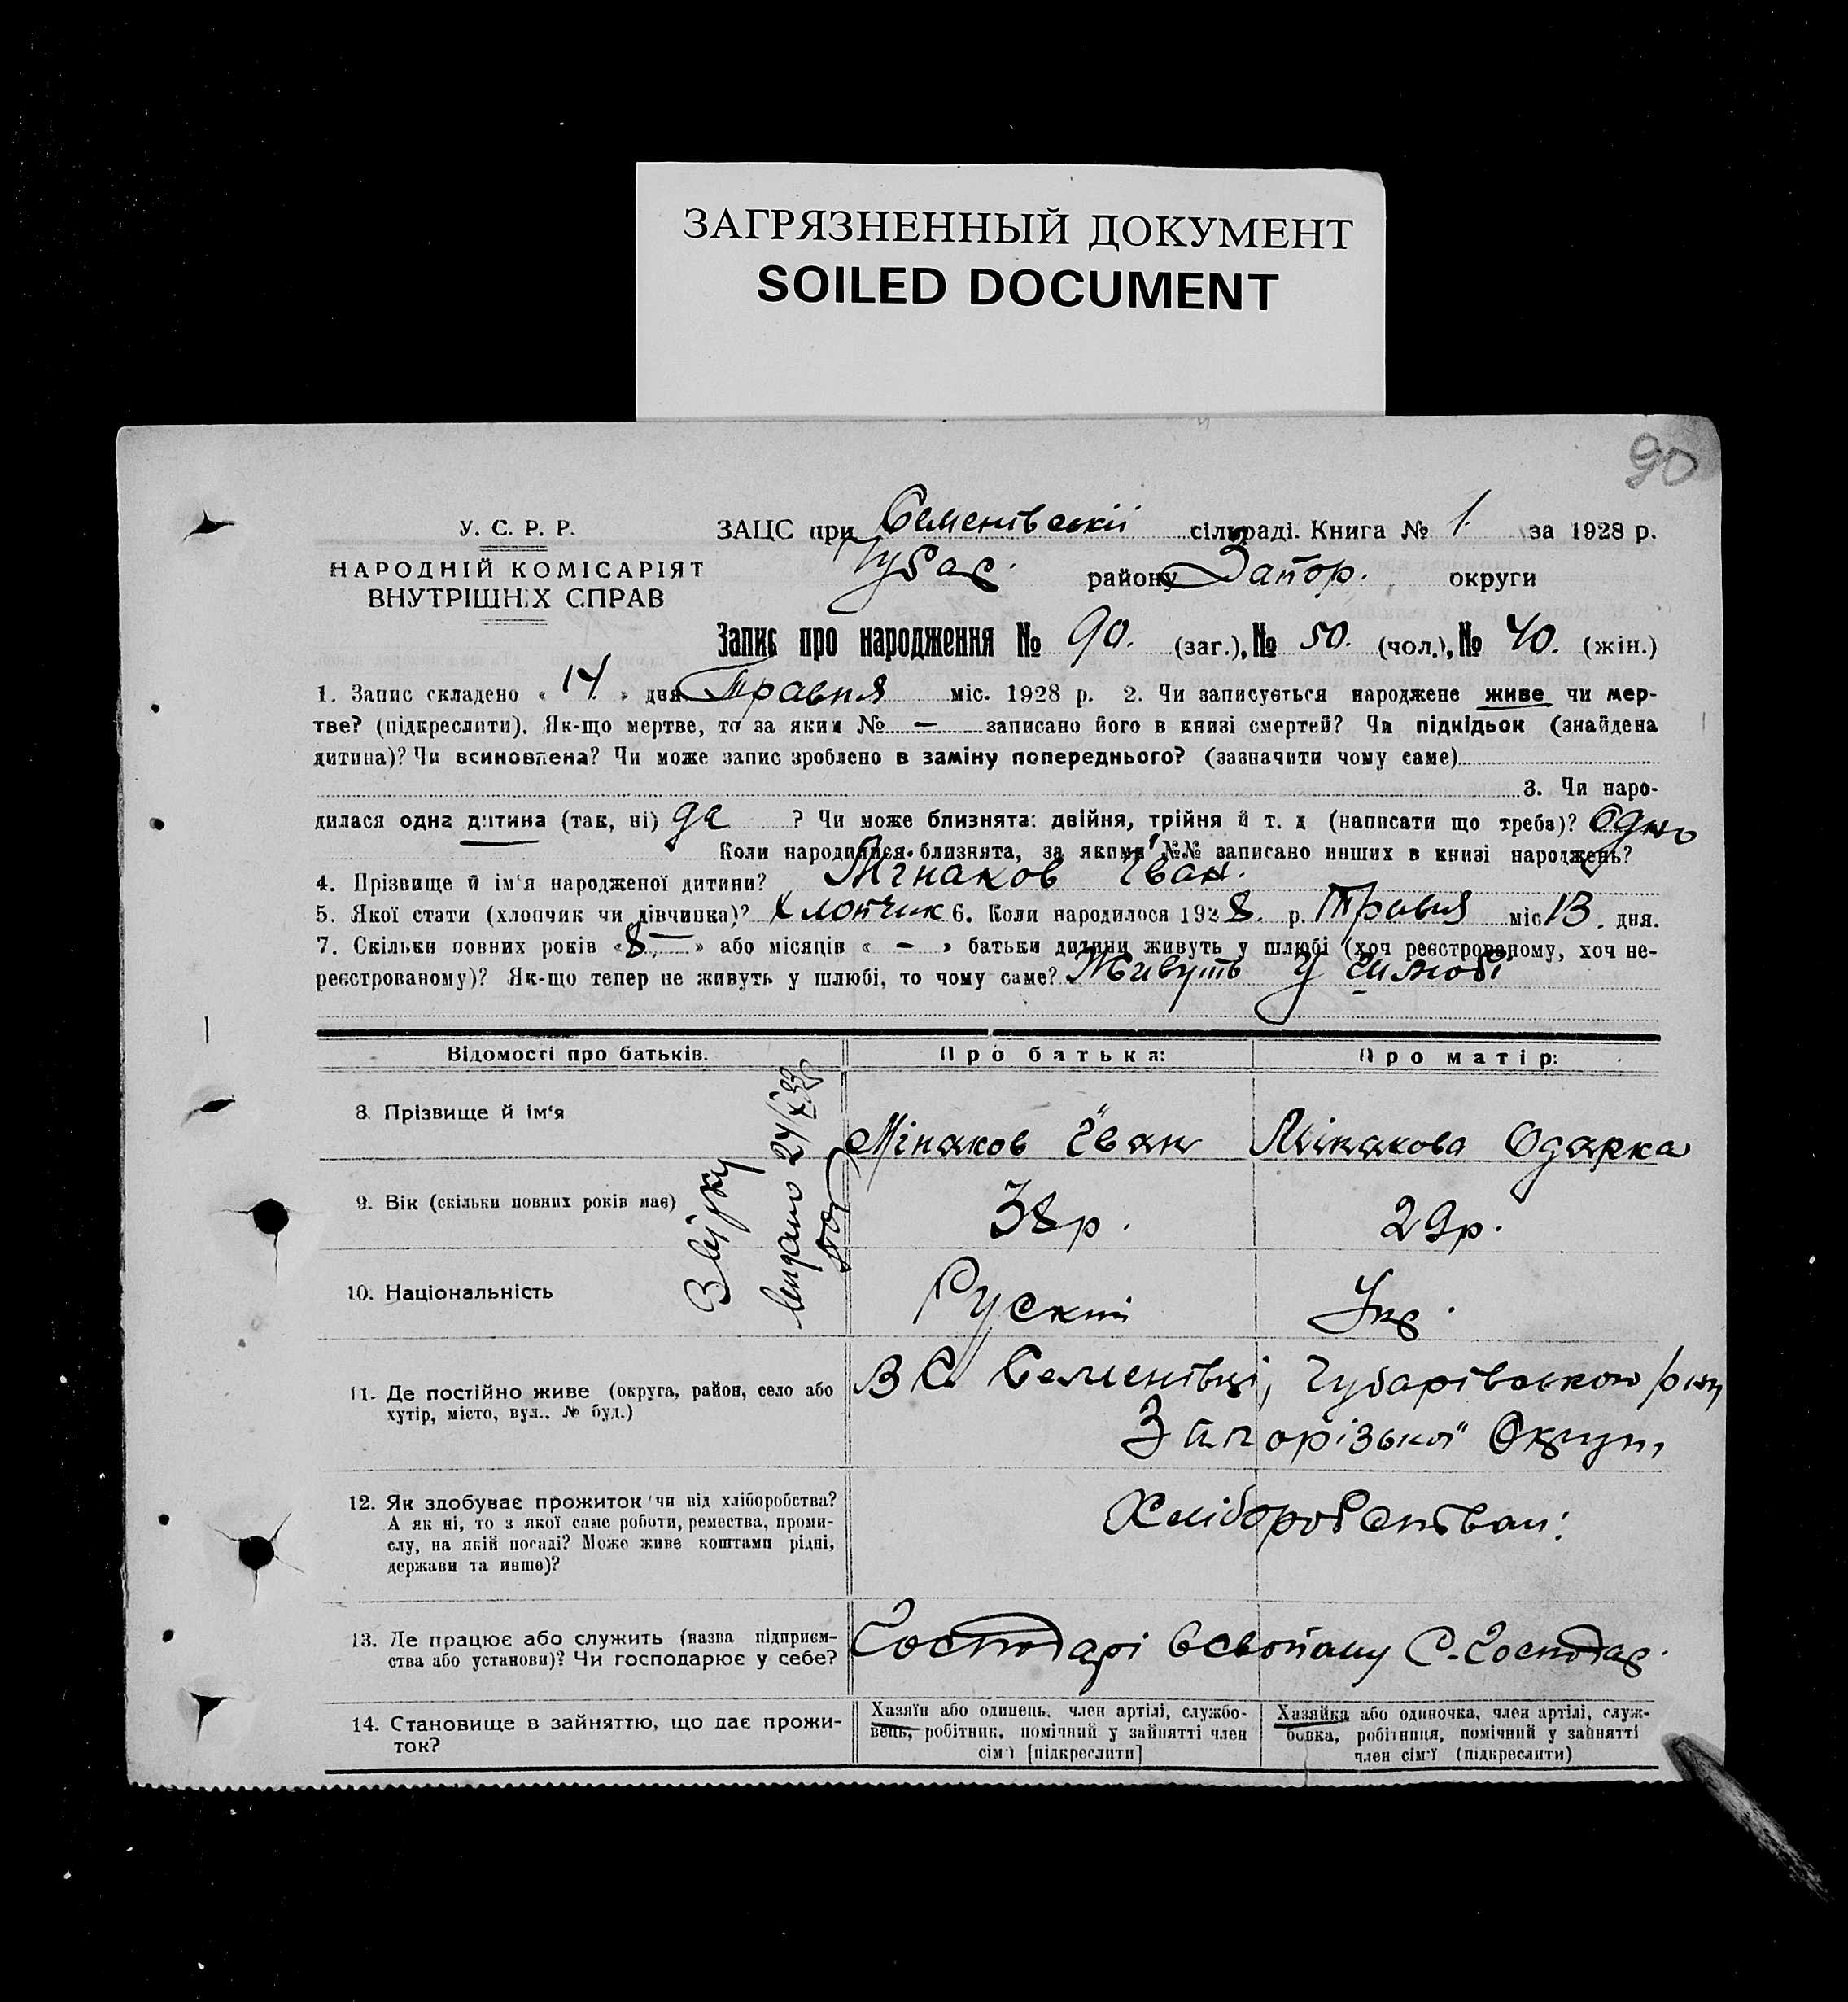 ЗАГРЯЗНЕННЫЙ ДОКУМЕНТ
SOILED DOCUMENT
90
У. С. Р. Р.
НАРОДНІЙ КОМІСАРІЯТ
ВНУТРІШНІХ СПРАВ
ЗАЦС при Семенівській сільраді. Книга № 1 за 1928 р.
Губар. району Запор. округи
Запис про народження № 90. (заг.), № 50. (чол.), № 40. (жін.)
1. Запис складено « 14 » дня Травня міс. 1928 р. 2. Чи записується народжене живе чи мер-
тве? (підкреслити). Як-що мертве, то за яким № — записано його в книзі смертей? Чи підкідьок (знайдена
дитина)? Чи всиновлена? Чи може запис зроблено в заміну попереднього? (зазначити чому саме)
3. Чи наро-
дилася одна дитина (так, ні) да ? Чи може близнята: двійня, трійня й т. д (написати що треба)? Одно
Коли народилися близнята, за якими №№ записано инших в книзі народжень?
4. Прізвище й ім'я народженої дитини? Мінаков Іван.
5. Якої стати (хлопчик чи дівчинка)? Хлопчик 6. Коли народилося 1928. р. Травня міс 13. дня.
7. Скільки повних років « 8. — » або місяців « — » батьки дитини живуть у шлюбі (хоч реєстрованому, хоч не-
реєстрованому)? Як-що тепер не живуть у шлюбі, то чому саме? Живуть у шлюбі
Відомості про батьків. Про батька: Про матір:
8. Прізвище й ім'я Мінаков Іван Мінакова Одарка
9. Вік (скільки повних років має) 38 р. 29 р.
10. Національність Руский Укр.
11. Де постійно живе (округа, район, село або
хутір, місто, вул.. № буд.)
В С. Семенівці, Губарівського р-ну
Запорізької Округи,
12. Як здобуває прожиток чи від хліборобства?
А як ні, то з якої саме роботи, ремества, проми-
слу, на якій посаді? Може живе коштами рідні,
держави та инше)?
Хліборобством.
13. Де працює або служить (назва підприєм-
ства або установи)? Чи господарює у себе?
Господарі в своїому С. Господар.
14. Становище в зайняттю, що дає прожи-
ток?
Хазяїн або одинець, член артілі, службо-
вець, робітник, помічний у зайнятті член
сім'ї [підкреслити]
Хазяйка або одиночка, член артілі, служ-
бовка, робітниця, помічний у зайнятті
член сім'ї (підкреслити)